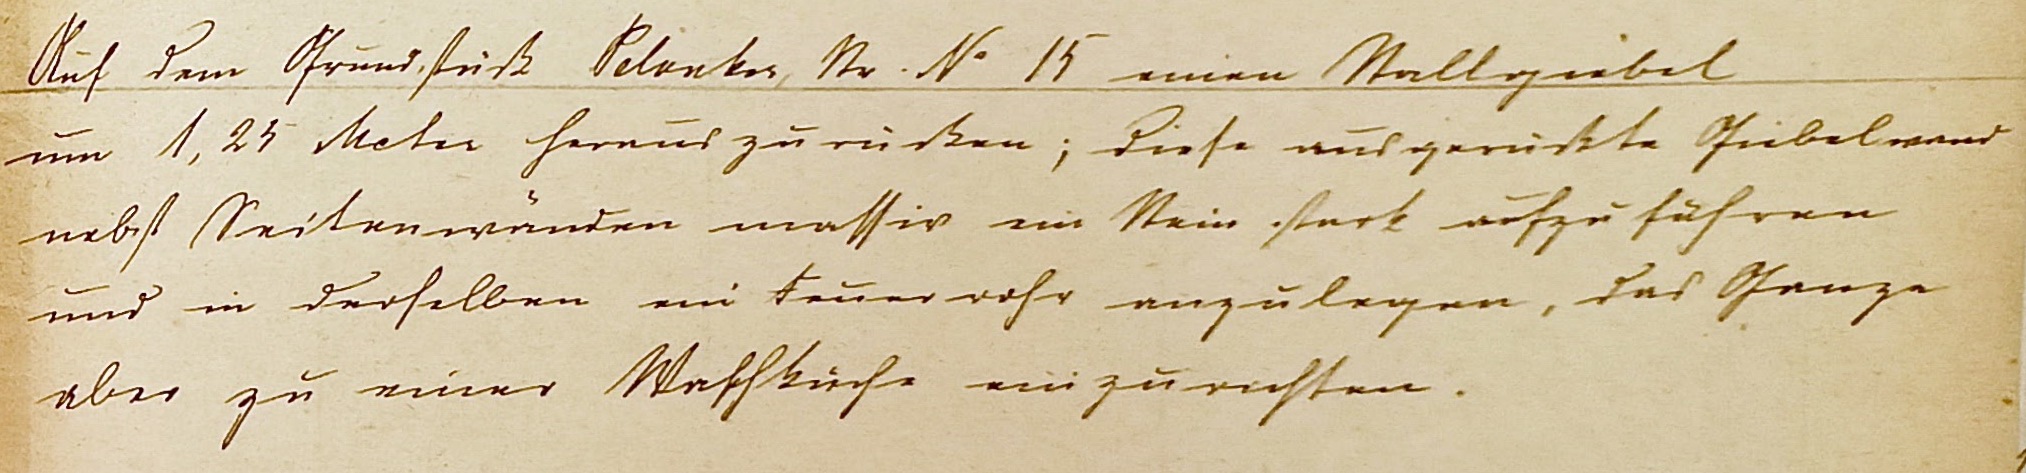 Auf dem Grundstück Pelonker, Str. No 15 einen Stallgiebel
um 1,25 Meter herauszurücken; diese ausgerückte Giebelwand
nebst Seitenwänden massiv ein Stein stark aufzuführen
und in derselben ein Feuerrohr anzulegen, das Ganze
aber zu einer Waschküche einzurichten.